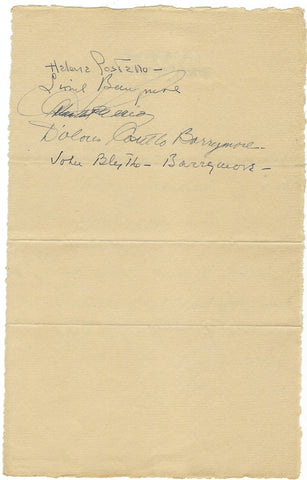 Helene Costello -
Lionel Barrymore
Dolores Costello Barrymore -
John Blythe - Barrymore -